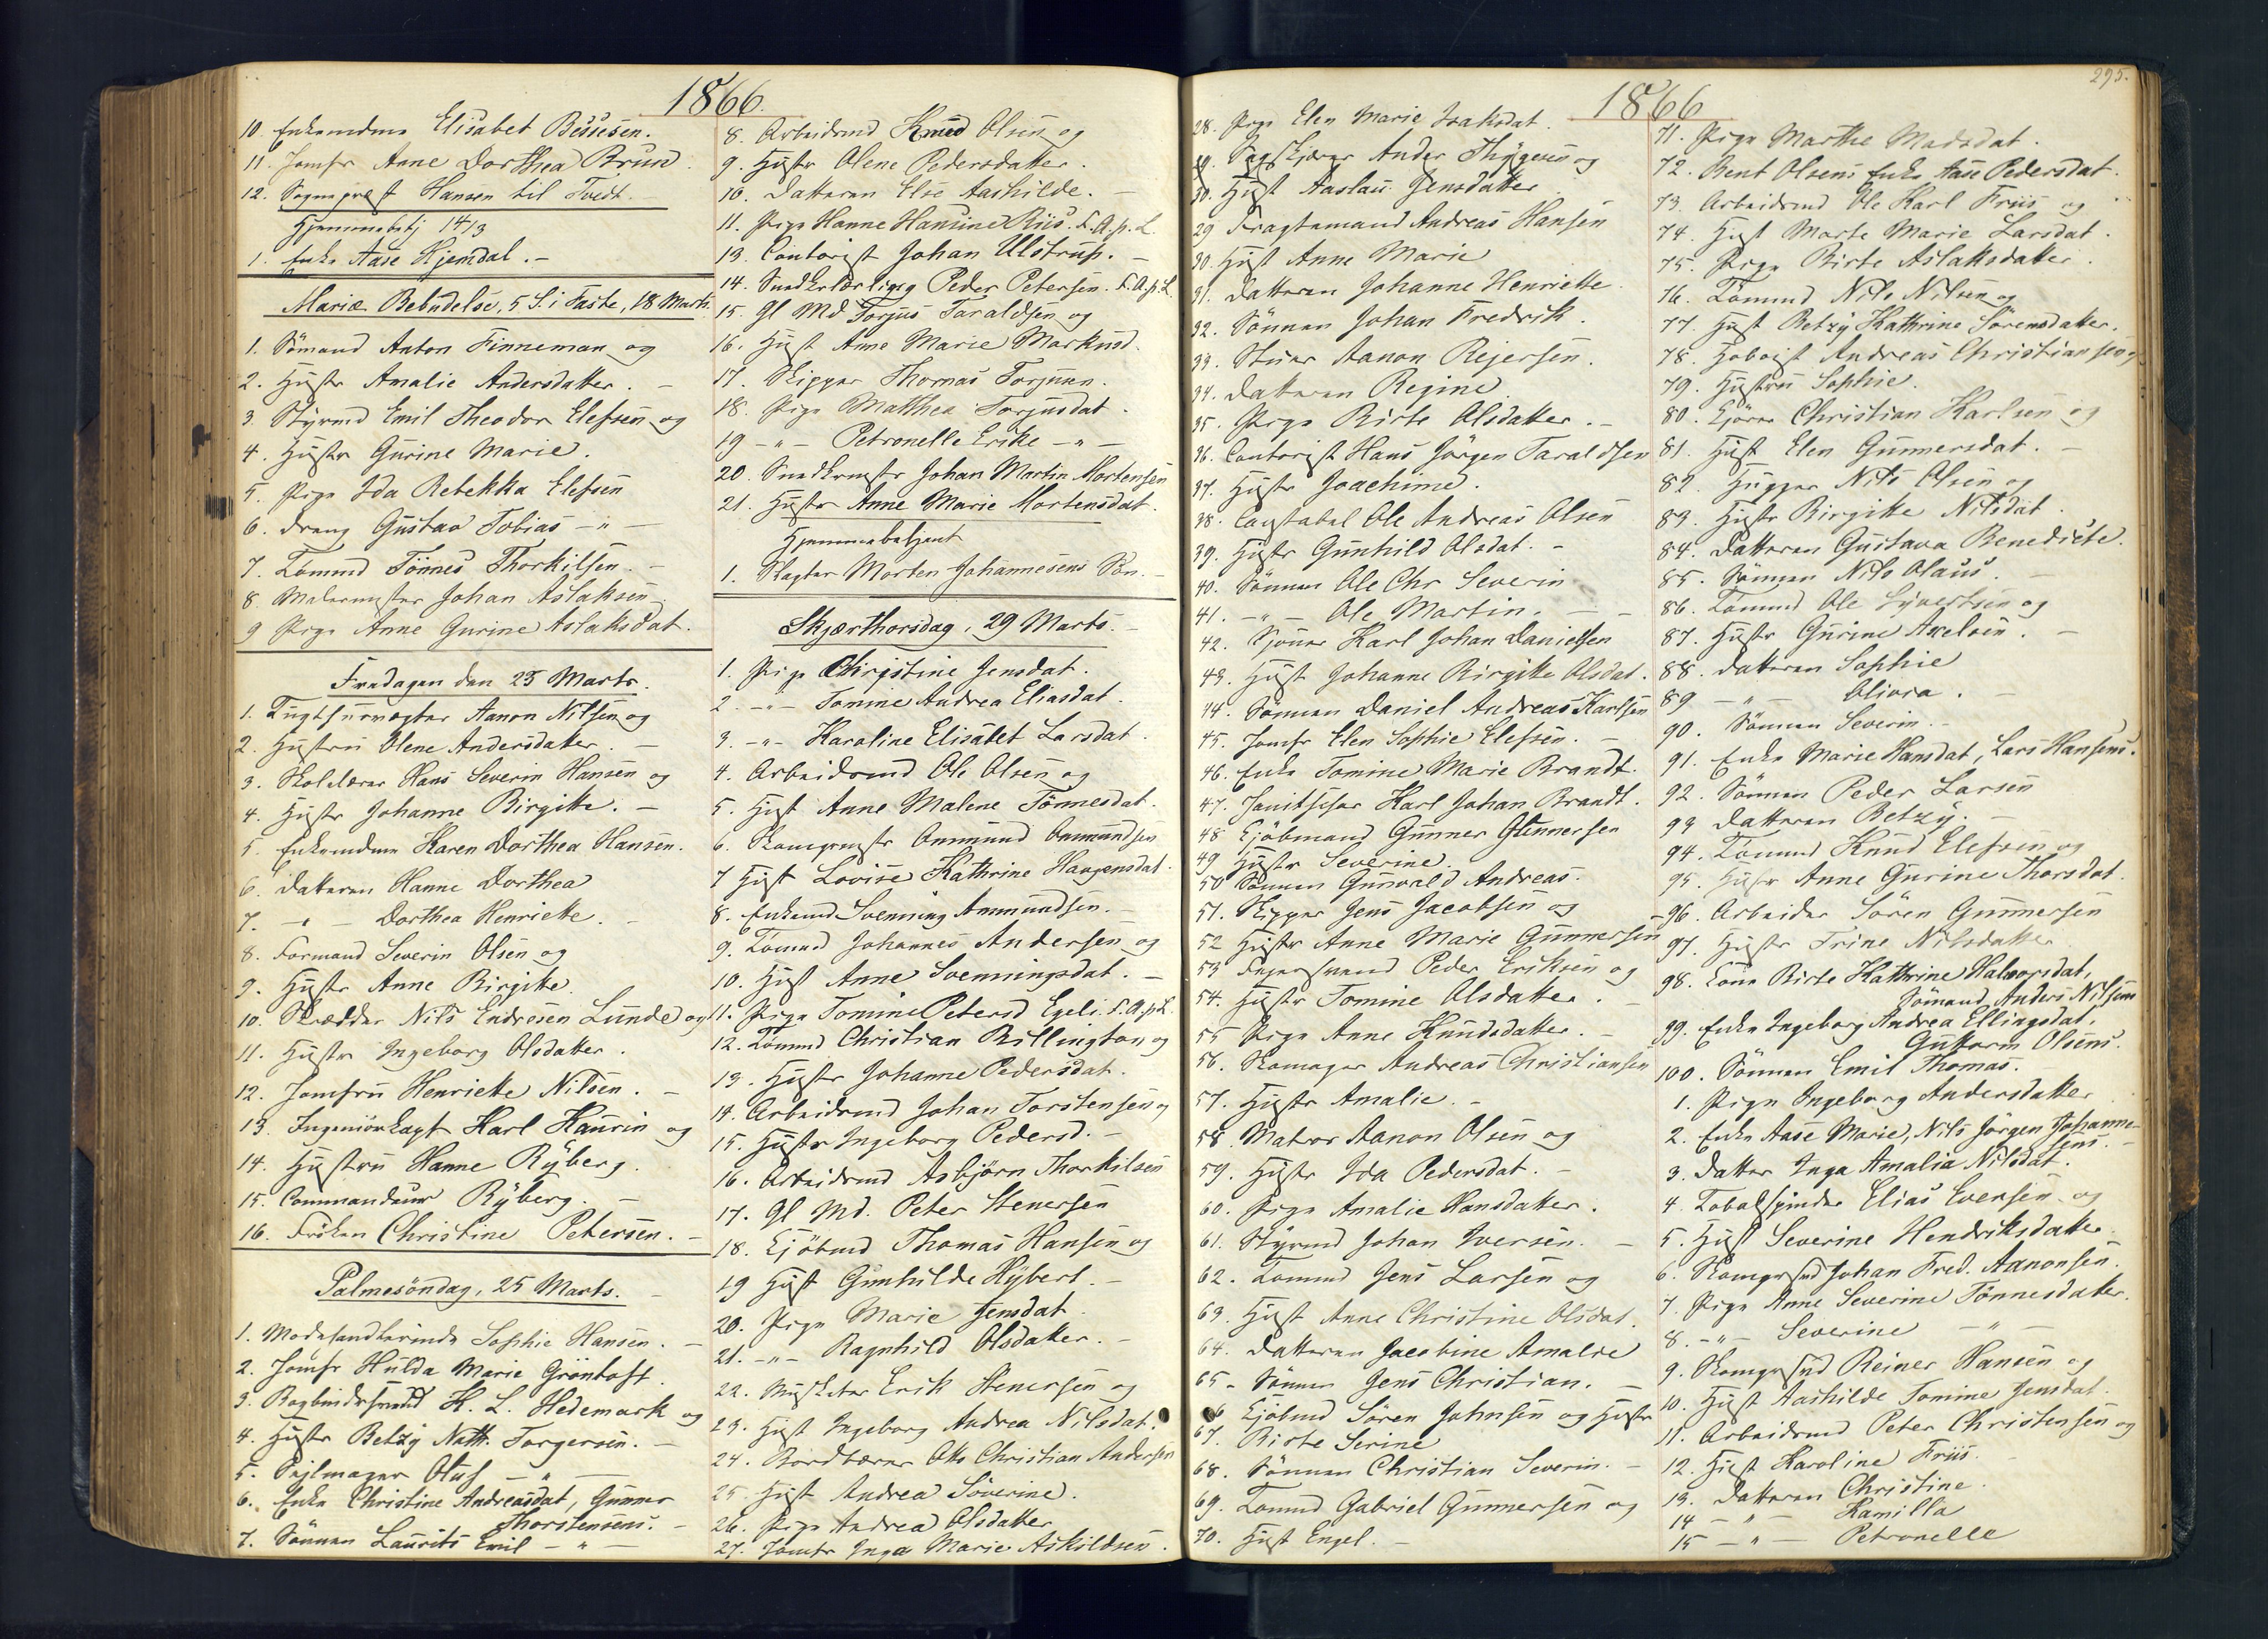 1866.
10. Enkemdme Elisabet Bessesen.
11. Jomfr Anne Dorthea Brun.
12. Sogneprest Hansen til Tvedt.
Hjemmebetj 14/3
1. Enke Aase Hjemdal. -
Mariæ Bebudelse, 5 S. i Faste, 18 Marts.
1. Sömand Anton Finneman og
2. Hustr Amalie Andersdatter. -
3. Styrmd Emil Theodor Elefsen og
4. Hustr Gurine Marie.
5. Pige Ida Rebekka Elefsen
6. Dreng Gustav Tobias - " -
7. Tömmd Tönnes Thorkilsen. -
8. Malermester Johan Aslaksen.
9 Pige Anne Gurine Aslaksdat.
Fredagen den 23 Marts.
1. Tugthusvægter Aanon Nilsen og
2. Hustru Olene Andersdatter. -
3. Skolelærer Hans Severin Hansen og
4. Hustr Johanne Birgitte. -
5. Enkemdme Karen Dorthea Hansen.
6. Datteren Hanne Dorthea
7. - " - Dorthea Henriette. -
8. Formand Severin Olsen og
9. Hustr Anne Birgitte.
10. Skrædder Nils Endresen Lunde og
11. Hustr Ingeborg Olsdatter.
12. Jomfru Henriette Nilsen. -
13. Ingeniörkapt Karl Haurin og
14. Hustru Hanne Ryberg.
15. Commandeur Ryberg. -
16. Fröken Christine Petersen. -
Palmesöndag, 25 Marts. -
1. Modehandlerinde Sophie Hansen. -
2. Jomfr Hulda Marie Gröntoft.
3. Bogbindersvend K. L. Hedemark og
4. Hustr Betzy Nath. Torgersen. -
5. Sejlmager Oluf - " -
6. Enke Christine Andreasdat, Gunner
Thorstensens. -
7. Sönnen Laurits Emil - " -
8. Arbeidsmd Knud Olsen og
9. Hustr Olene Pedersdatter.
10. Datteren Else Aashilde. -
11. Pige Hanne Hansine Riis. F. A. p. L.
13. Contorist Johan Ulstrup. -
14. Snedkerlærling Peder Petersen. F. A. p. L.
15. Gl Md Torjus Taraldsen og
16. Hust Anne Marie Markusd.
17. Skipper Thomas Torjusen.
18. Pige Matthea Torjusdat.
19 - " - Petronelle Erike - " -
20. Snedkermstr Johan Martin Mortensen
21. Hustr Anne Marie Mortensdat.
Hjemmebetjent
1. Slagter Morten Johannesens Sön. -
Skjærthorsdag, 29 Marts. -
1. Pige Christine Jensdat.
2. - " - Tomine Andrea Eliasdat.
3. - " - Karoline Elisabet Larsdat.
4. Arbeidsmd Ole Olsen og
5. Hust Anne Malene Tönnesdat.
6. Skomgrmstr Ommund Ommundsen
7 Hust Lovise Kathrine Haagensdat.
8. Enkemd Svenning Ammundsen. -
9. Tömmd Johannes Andersen og
10. Hust Anne Svenningsdat. -
11. Pige Tomine Petersd Egeli. F. A. p. L.
12. Tömmd Christian Billington og
13. Hustr Johanne Pedersdat.
14. Arbeidsmd Johan Torstensen og
15. Hustr Ingeborg Pedersd. -
16. Arbeidsmd Asbjörn Thorkilsen
17. Gl Md. Peter Stenersen
18. Kjöbmd Thomas Hansen og
19 Hust Gunhilde Kybert. -
20. Pige Marie Jensdat.
21. - " - Ragnhild Olsdatter. -
22. Musketer Erik Stenersen og
23. Hust Ingeborg Andrea Nilsdat.
24. Bordbærer Ole Christian Andersen
25. Hust Andrea Söverine.
26. Pige Andrea Olsdatter
27. Jomfr Inga Marie Askildsen.
1866
295.
28. Pige Elen Marie Isaksdat.
29. Sagskjærer Ander Thygesen og
30. Hust Aaslau Jensdatter
29 Fragtemand Andreas Hansen
30. Hust Anne Marie
31. Datteren Johanne Henriette.
32. Sönnen Johan Fredrik.
33. Stuer Aanon Rejersen.
34. Datteren Regine
35. Pige Birte Olsdatter. -
36. Contorist Hans Jörgen Taraldsen
37. Hustr Joachime.
38. Constabel Ole Andreas Olsen
39. Hustr Gunhild Olsdat. -
40. Sönnen Ole Chr Severin
41. - " - Ole Martin. -
42. Skjöner Karl Johan Danielsen
43. Hust Johanne Birgitte Olsdat.
44. Sönnen Daniel Andreas Karlsen
45. Jomfr Elen Sophie Elefsen. -
46. Enke Tomine Marie Brandt.
47. Janitschar Karl Johan Brandt.
48 Kjöbmand Gunner Gunnersen
49 Hustr Severine.
50 Sönnen Gunvald Andreas.
51. Skipper Jens Jacobsen og
52 Hustr Anne Marie Gunnersen
53 Fejersvend Peder Eriksen og
54. Hustr Tomine Olsdatter. -
55 Pige Anne Knudsdatter. -
56. Skomager Andreas Christiansen
57. Hustr Amalie. -
58. Matros Aanon Olsen og
59. Hustr Ida Pedersdat. -
60. Pige Amalie Hansdatter.
61. Styrmd Johan Iversen. -
62. Tömmd Jens Larsen og
63. Hust Anne Christine Olsdat.
64. Datteren Jacobine Amalie
65 - Sönnen Jens Christian. -
66 Kjöbmd Sören Johnsen og Hustr
67. Birte Serine
68. Sönnen Christian Severin. -
69. Tömmd Gabriel Gunnersen og
70. Hust Engel. -
71. Pige Marthe Madsdat.
72. Bent Olsens Enke Aase Pedersdat.
73. Arbeidsmd Ole Karl Friis og
74. Hust Marte Marie Larsdat.
75. Pige Birte Aslaksdatter.
76. Tömmd Nils Nilsen og
77. Hust Betzy Kathrine Sörensdatter.
78. Hoboist Andreas Christiansen og
79. Hustru Sophie.
80. Kjörer Christian Karlsen og
81. Hust Elen Gunnersdat. -
82. Hugger Nils Olsen og
83. Hustr Birgitte Nilsdat.
84. Datteren Gustava Benedicte.
85. Sönnen Nils Olaus. -
86. Tömmd Ole Syvertsen og
87. Hustr Gurine Axelsen. -
88. Datteren Sophie
89 - " - Olivia. -
90. Sönnen Severin. -
91. Enke Marie Hansdat, Lars Hansens.
92. Sönnen Peder Larsen
93 Datteren Betzy. -
94. Tömmd Knud Elefsen og
95. Hustr Anne Gurine Thorsdat.
96. Arbeider Sören Gunnersen
97. Hustr Trine Nilsdatter
98. Kone Birte Kathrine Halvorsdat,
Sömand Anders Nilsens
99. Enke Ingeborg Andrea Ellingsdat,
Guttorm Olsens.
100. Sönnen Emil Thomas.
1. Pige Ingeborg Andersdatter
2. Enke Aase Marie, Nils Jörgen Johanne-
sens. -
3. Datter Inga Amalia Nilsdat.
4. Tobakspinder Elias Evensen og
5. Hust Severine Hendriksdatter.
6. Skomgrsvd Johan Fred. Aanonsen.
7. Pige Anne Severine Tönnesdatter.
8. - " - Severine - " -
9. Skomgrsvd Reiner Hansen og
10. Hust Aashilde Tomine Jensdat.
11. Arbeidsmd Peter Christensen og
12. Hust Karoline Friis.
13. Datteren Christine.
14 - " - Kamilla
15 - " - Petronelle